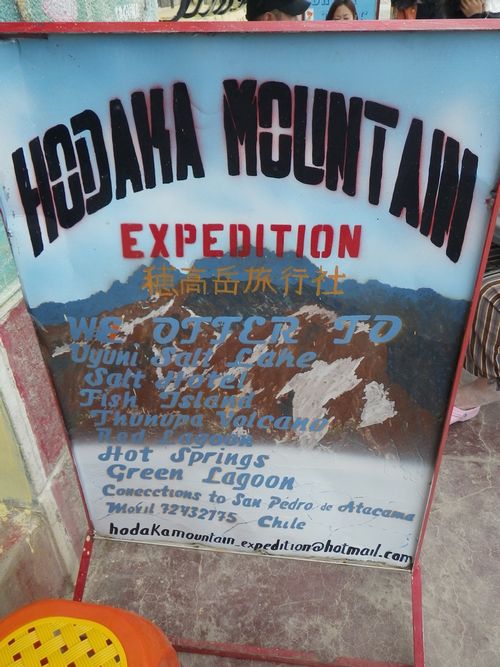 HODAKA MOUNTAIN
EXPEDITION
穂高岳旅行社
WE OFFER TO
Uyuni Salt Lake
Salt Hotel
Fish Island
Thunupa Volcano
Red Lagoon
Hot Springs
Green Lagoon
Conecctions to San Pedro de Atacama
Movil 72432775 Chile
hodakamountain_expedition@hotmail.com